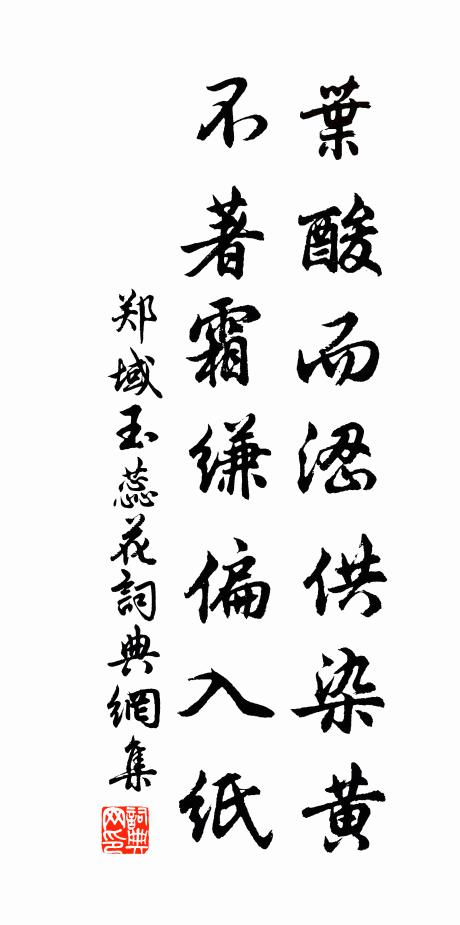 葉酸而澀供染黄
不著霜縑偏入紙
郑域玉蕊花詞典網集
詞典网印